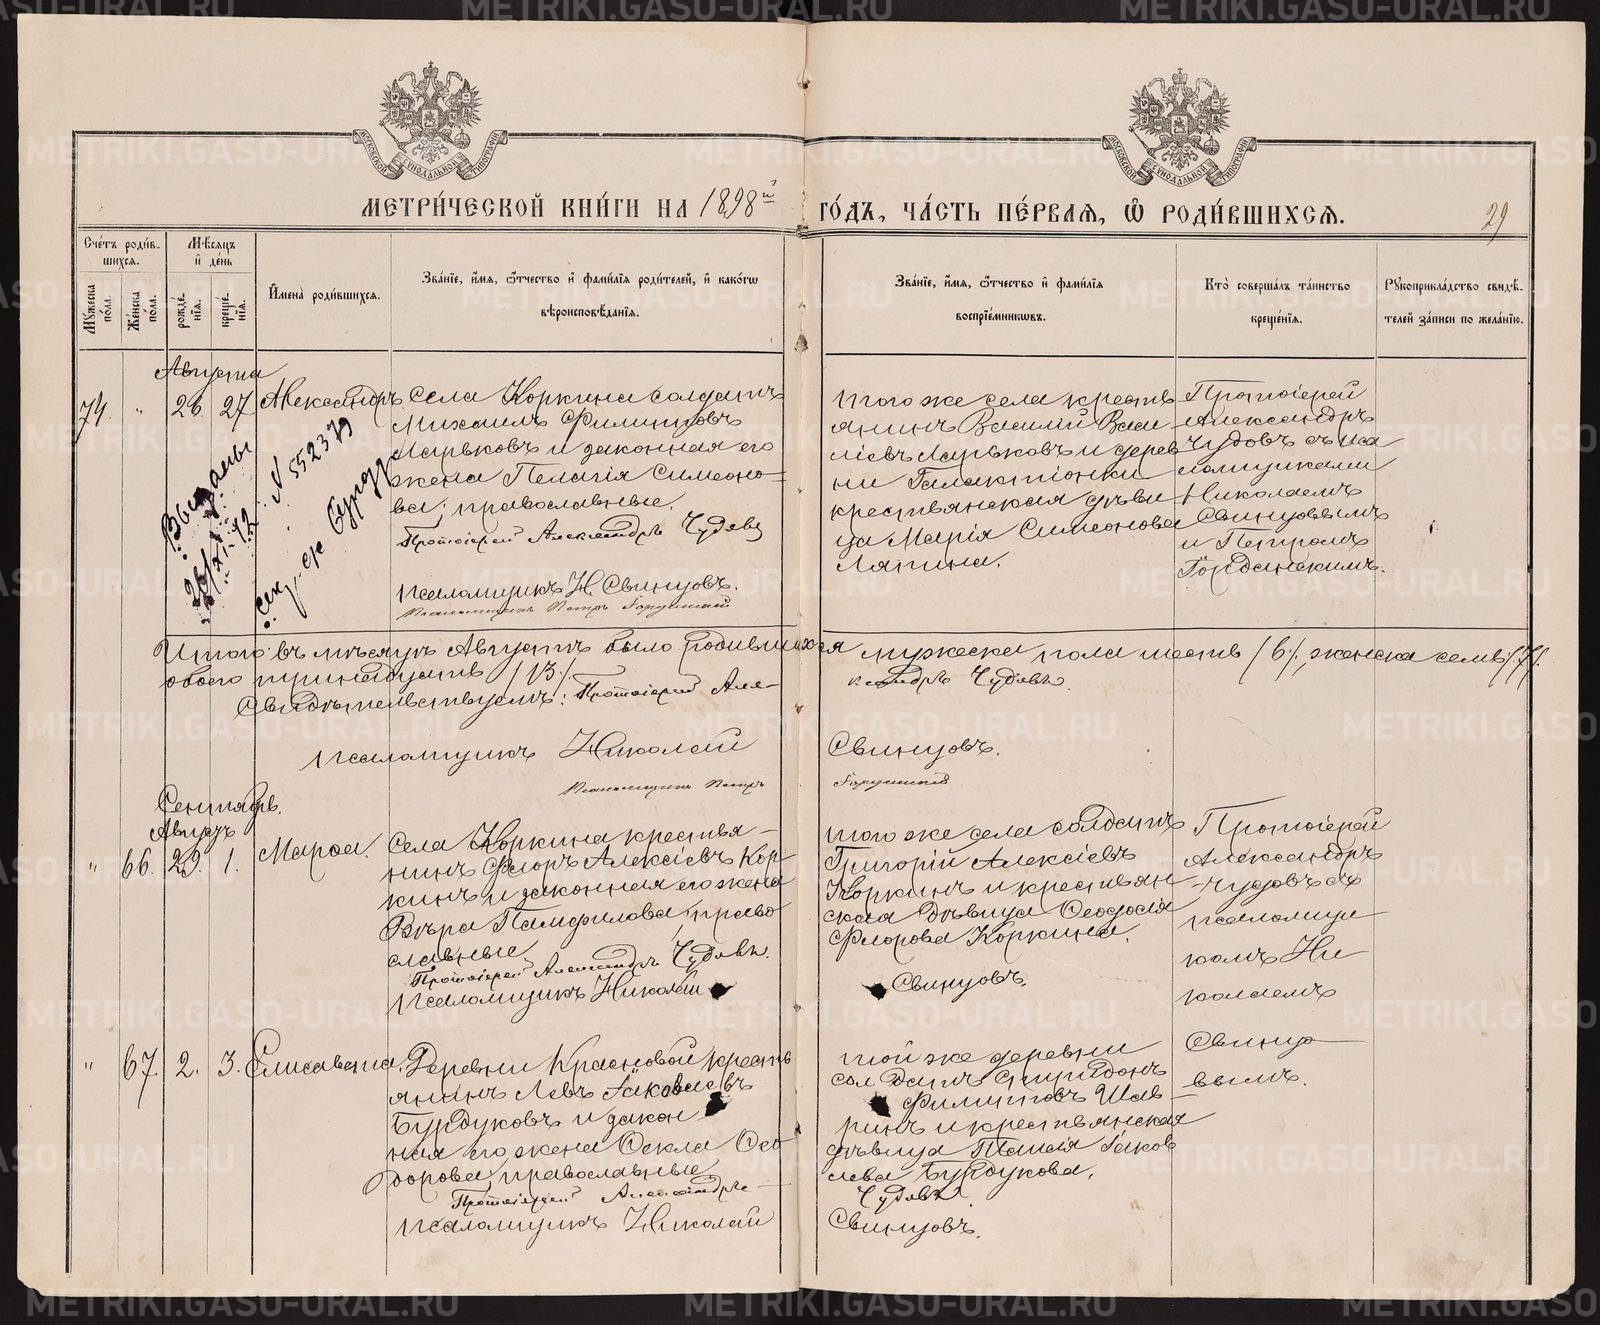 МЕТРИ́ЧЕСКОЙ КНИ́ГИ НА 1898й
ГО́ДЪ, ЧА́СТЬ ПЕ́РВАЯ, Ѡ РОДИ́ВШИХСЯ.
29
Сче́тъ роди́в-
шихся.
Мꙋ́жеска
по́ла.
Же́нска
по́ла.
Мѣ́сяцъ
и де́нь
рожде́-
нїя.
креще́-
нїя.
И҆мена̀ роди́вшихся.
Зва́нїе, и҆́мя, ѻ҆́тчество и҆ фами́лїя роди́телей, и҆ како́гѡ
вѣроисповѣ́данїя.
Зва́нїе, и҆́мя, ѻ҆́тчество и҆ фами́лїя
воспрїе́мникѡвъ.
Кто̀ соверша́лъ та́инство
креще́нїя.
Рꙋкоприкла́дство свидѣ́-
телей за́писи по жела́нїю.
Августа
74. " 26. 27 Александръ.
Села Коркина солдатъ
Михаилъ Филипповъ
Ларьковъ и законная его
жена Пелагія Симеоно-
ва; православные.
Протоіерей Александръ Чудовъ
псаломщикъ Н. Свинцовъ.
Псаломщикъ Петръ
Выданы
№ 552379
26/XI-42
того же села кресть
янинъ Василій Васи
ліевъ Ларьковъ и дерев
ни Галактіонки
крестьянская дѣви
ца Марія Симеонова
Лапина.
Протоіерей
Александръ
Чудовъ съ пса
ломщиками
Николаемъ
Свинцовымъ
и Петромъ
Итого въ мѣсяцѣ Августѣ было родившихся мужеска пола шесть /6/, женска семь /7/.
обоего тринадцать /13/.
Свидѣтельствуемъ: Протоіерей Але-
ксандръ Чудовъ.
псаломщикъ Николай Свинцовъ.
Псаломщикъ Петръ
Сентябрь.
Августъ
" 66. 29. 1. Марѳа.
Села Коркина крестья-
нинъ Флоръ Алексіевъ Кор-
кинъ и законная его жена
Вѣра Памфилова; право
славные.
Протоіерей Александръ Чудовъ.
псаломщикъ Николай Свинцовъ.
того же села солдатъ
Григорій Алексіевъ
Коркинъ и крестьян
ская дѣвица Ѳеодосія
Флорова Коркина.
Протоіерей
Александръ
Чудовъ съ
псаломщи
комъ Ни
колаемъ
Свинцо-
вымъ.
" 67. 2. 3. Елисавета.
Деревни Красновой кресть
янинъ Левъ Іаковлевъ
Бурдуковъ и закон
ная его жена Ѳекла Ѳео
дорова; православные
Протоіерей Александръ Чудовъ.
псаломщикъ Николай Свинцовъ.
той же деревни
солдатъ Спиридонъ
Филипповъ Шав-
ринъ и крестьянская
дѣвица Таисія Іаков
лева Бурдукова.
МОСКОВСКОЙ СѴНОДАЛЬНОЙ ТИПОГРАФІИ
МОСКОВСКОЙ СѴНОДАЛЬНОЙ ТИПОГРАФІИ
METRIKI.GASO-URAL.RU